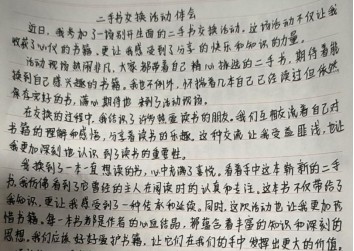 二手书交换活动体会
近日，我参加了一场别开生面的二手书交换活动。这场活动不仅让我
收获了心仪的书籍，更让我感受到了分享的快乐和知识的力量。
活动现场热闹非凡，大家都带着自己精心挑选的二手书，期待着能
换到自己感兴趣的书籍。我也不例外，怀揣着几本自己已经读过但依然
保存完好的书，满心期待地来到了活动现场。
在交换的过程中，我结识了许多热爱读书的朋友。我们互相交流着自己对
书籍的理解和感悟，分享着读书的乐趣。这种交流让我受益匪浅，也让
我更加深刻地认识到了读书的重要性。
我换到了一本一直想读的书，心中充满了喜悦。看着手中这本崭新的二手
书，我仿佛看到了它曾经的主人在阅读时的认真和专注。这本书不仅带给了
我知识，更让我感受到了一种传承和延续。同时，这次活动也让我更加珍
惜书籍。每一本书都是作者的心血结晶，都蕴含着丰富的知识和深刻的
思想。我们应该好好爱护书籍，让它们在我们的手中发挥出更大的价值。